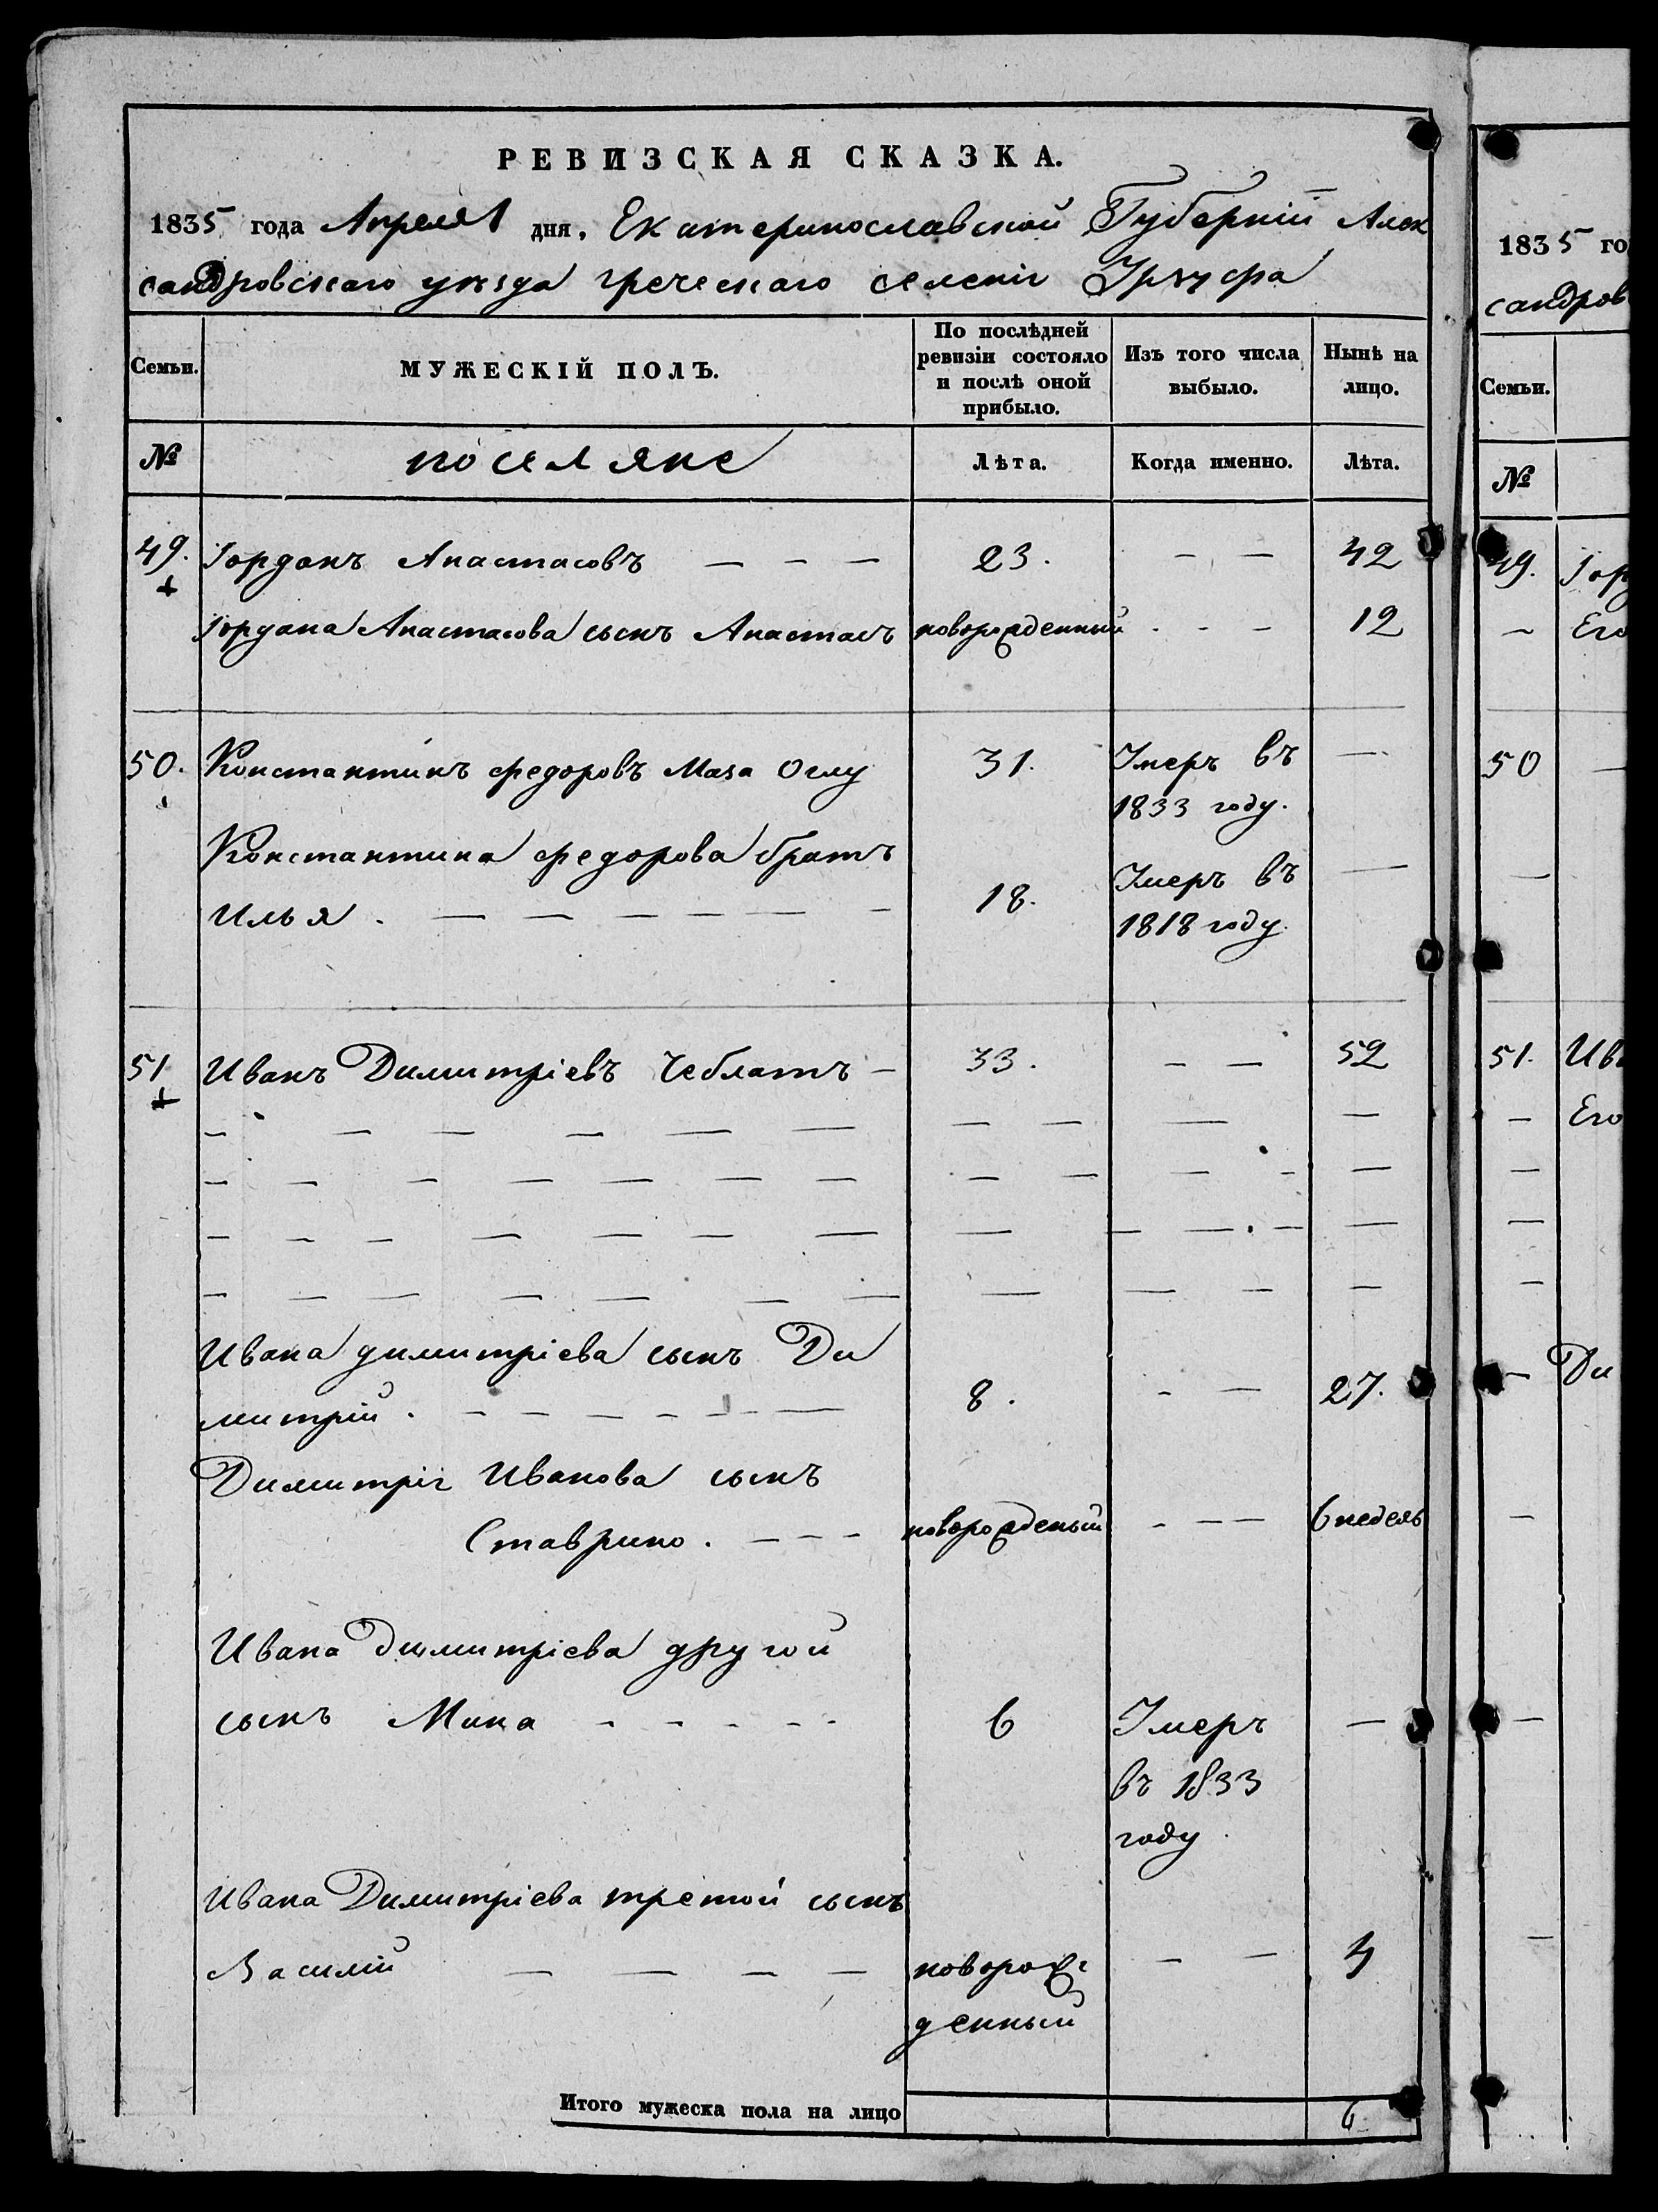 РЕВИЗСКАЯ СКАЗКА.
1835 года Апреля 1 дня, Екатеринославской Губернiи Алек
сандровскаго уезда греческаго селенiя Урзуфа
Семьи.
МУЖЕСКIЙ ПОЛЪ.
По послѣдней ревизiи состояло и послѣ оной прибыло.
Изъ того числа выбыло.
Нынѣ на лицо.
№ поселяне Лѣта. Когда именно. Лѣта.
49. Iорданъ Анастасовъ — — — 23. — — 42
Iордана Анастасова сынъ Анастасъ новорожденный - - - 12
50. Константинъ федоровъ Маза Оглу 31. Умеръ въ —
1833 году.
Константина федорова братъ
Илья . — — — — — - 18. Умеръ въ —
1818 году.
51 Иванъ Димитрiевъ Чеблатъ — 33. — — 52
Ивана димитрiева сынъ Ди
митрiй . — — — — — — 8. - — 27.
Димитрiя Иванова сынъ
Ставрино. — - - новорожденый - — — 6 недель
Ивана димитрiева другой
сынъ Мина - - - - - 6 Умеръ —
въ 1833
году.
Ивана Димитрiева третой сынъ
Василiй — — — — новорож= - — 4
денный
Итого мужеска пола на лицо 6
1835 го
сандров
Семьи.
№
49. Iор
— Его
50 —
51. Ив
— Его
— Ди